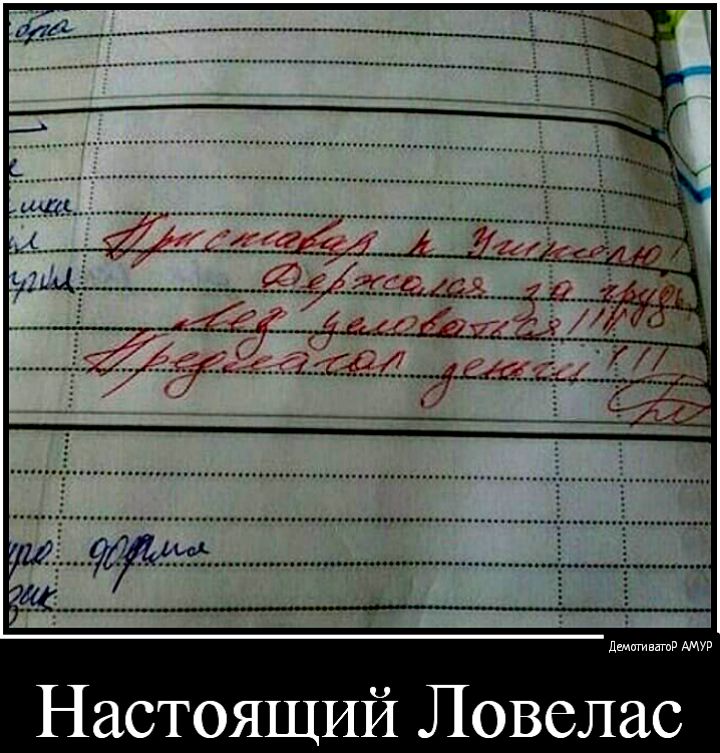 бра
е
шка
ил
угия
Приставал к Учителю!
Держался за грудь
Лез целоваться!!!
Предлагал деньги!!!
форма
ДемотиватоР АМУР
Настоящий Ловелас